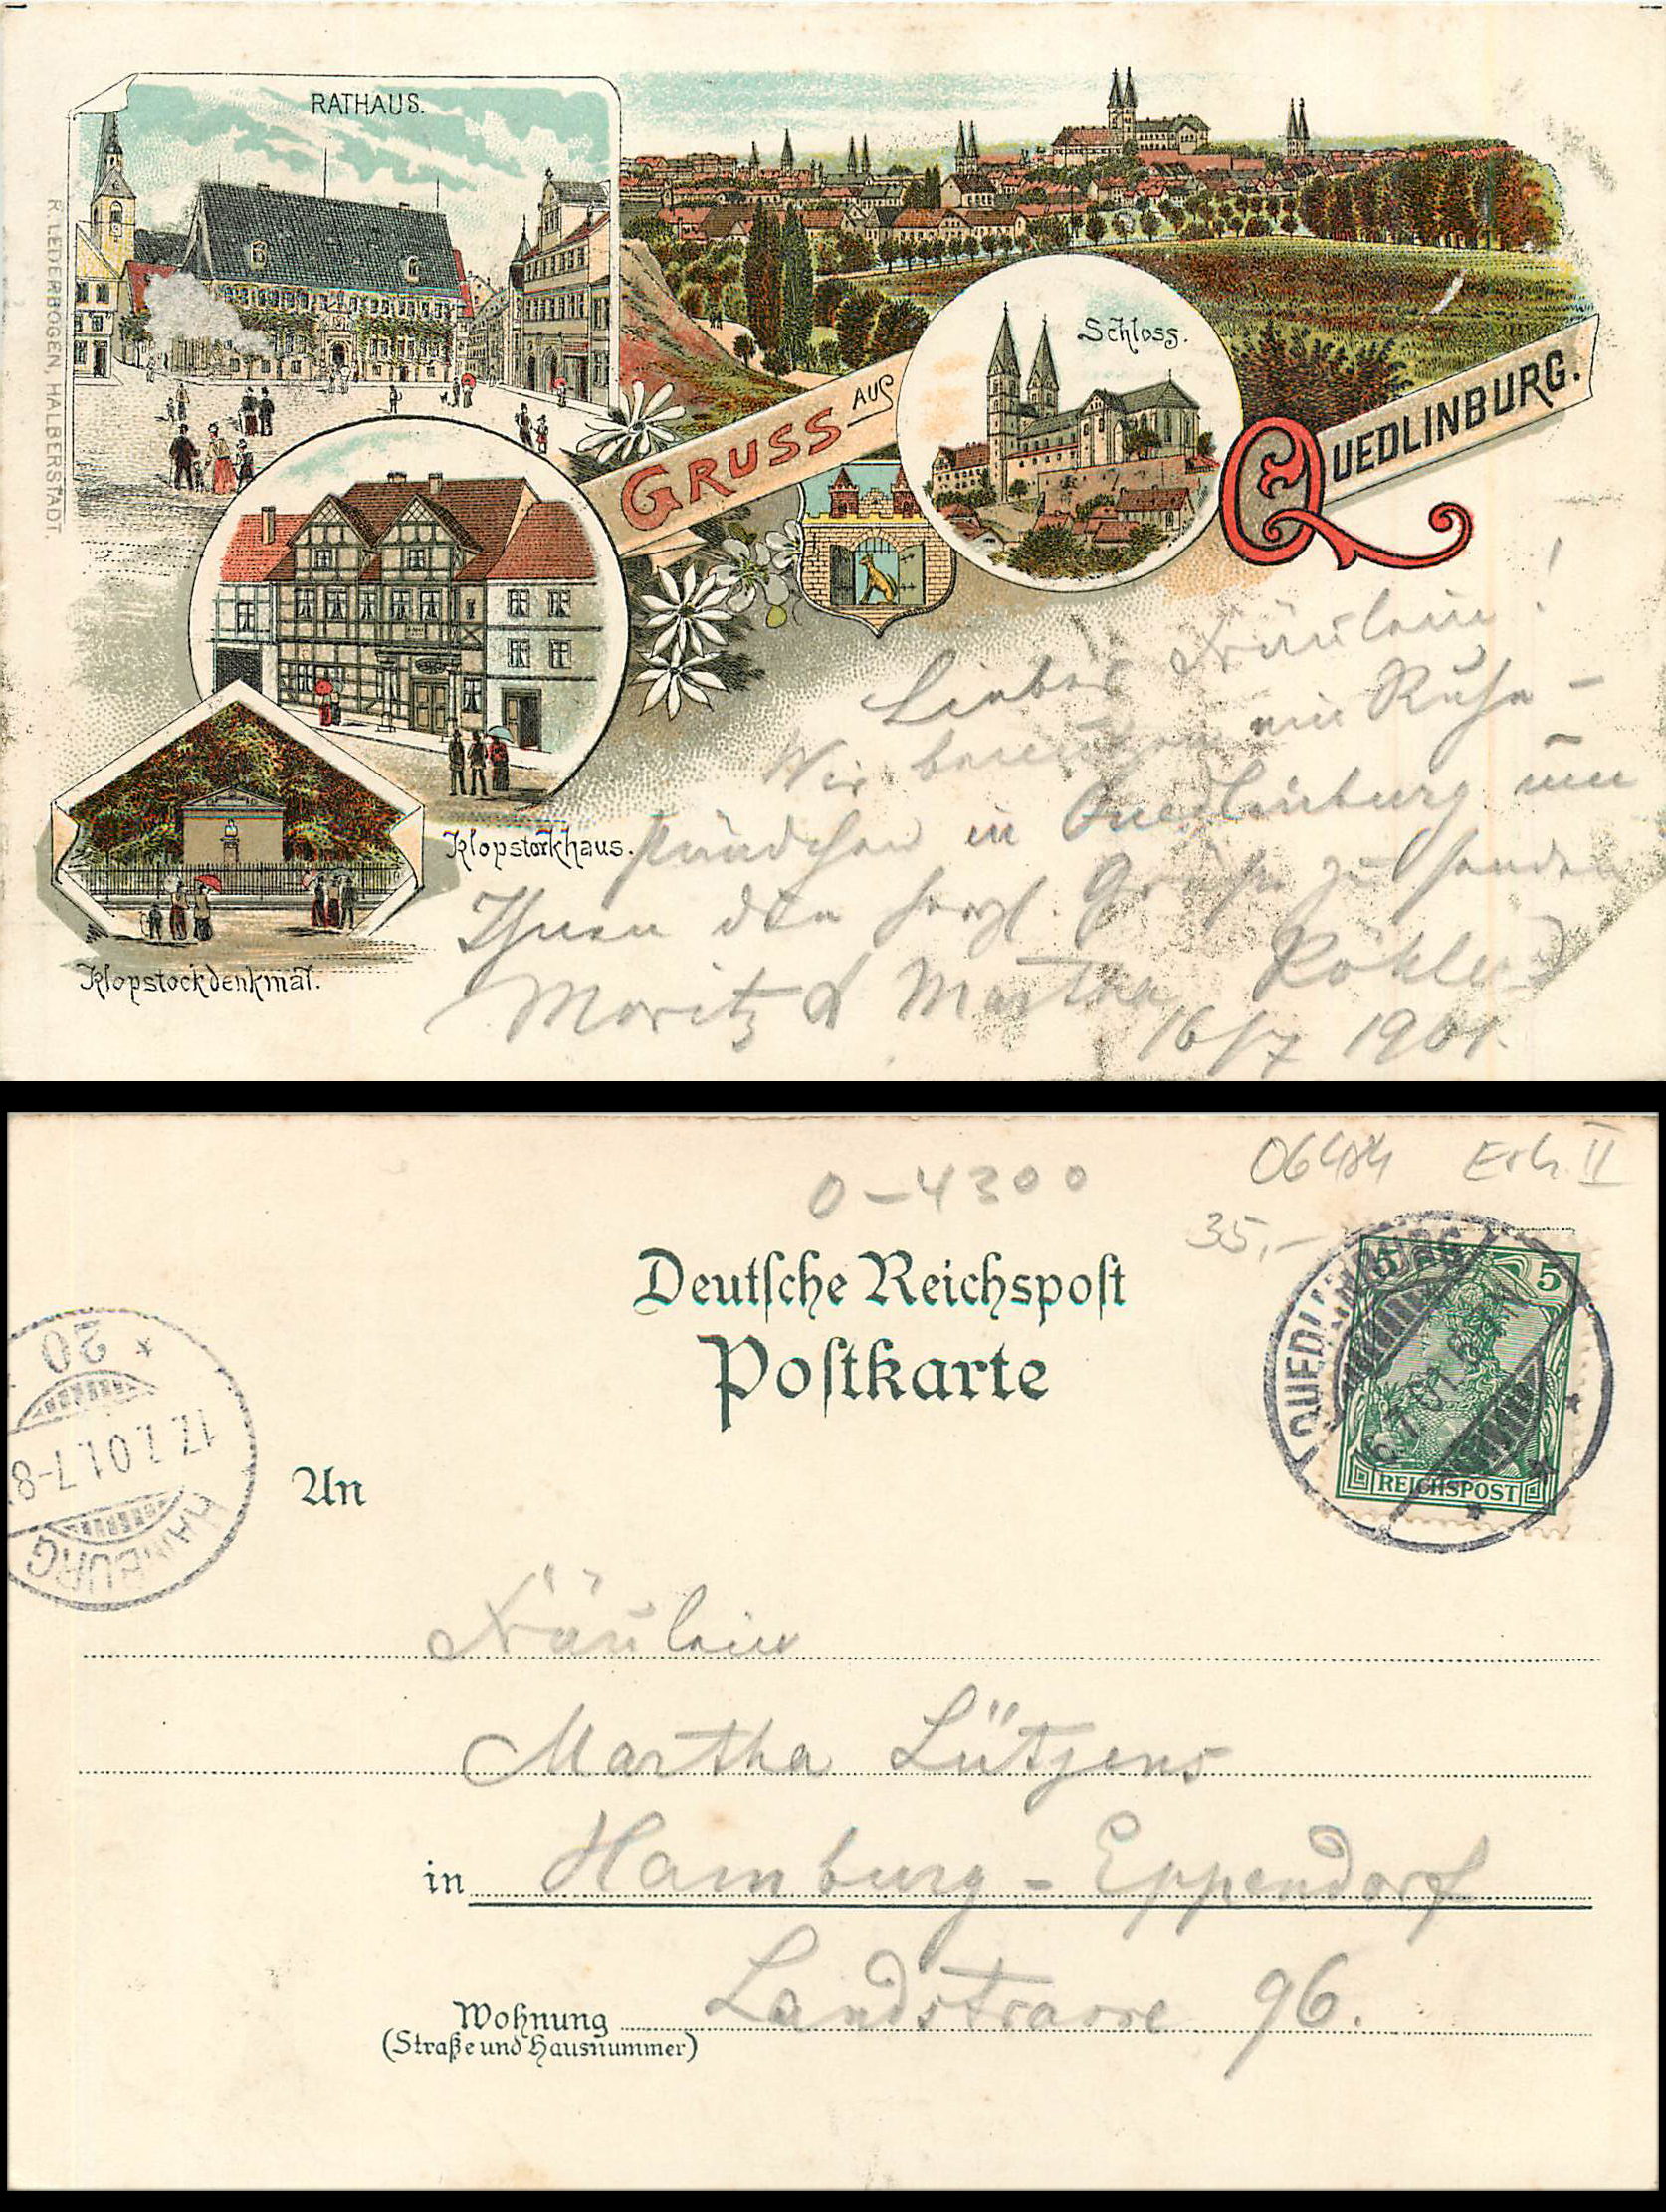 RATHAUS.
R. LEDERBOGEN, HALBERSTADT.
GRUSS AUS
QUEDLINBURG.
Schloss.
Klopstockhaus.
Klopstockdenkmal.
Liebes Fräulein!
Wir benutzen ein Ruhe-
stündchen in Quedlinburg um
Ihnen die herzl. Grüße zu senden
Moritz & Martha Köhler
16/7 1901.
0-4300
06484 Erh. II
35,-
Deutsche Reichspost
Postkarte
QUEDLINBURG
5 5
REICHSPOST
HAMBURG
17.7.01.7-8
* 20
An
Fräulein
Martha Lütjens
in Hamburg-Eppendorf
Landstrasse 96.
Wohnung
(Straße und Hausnummer)